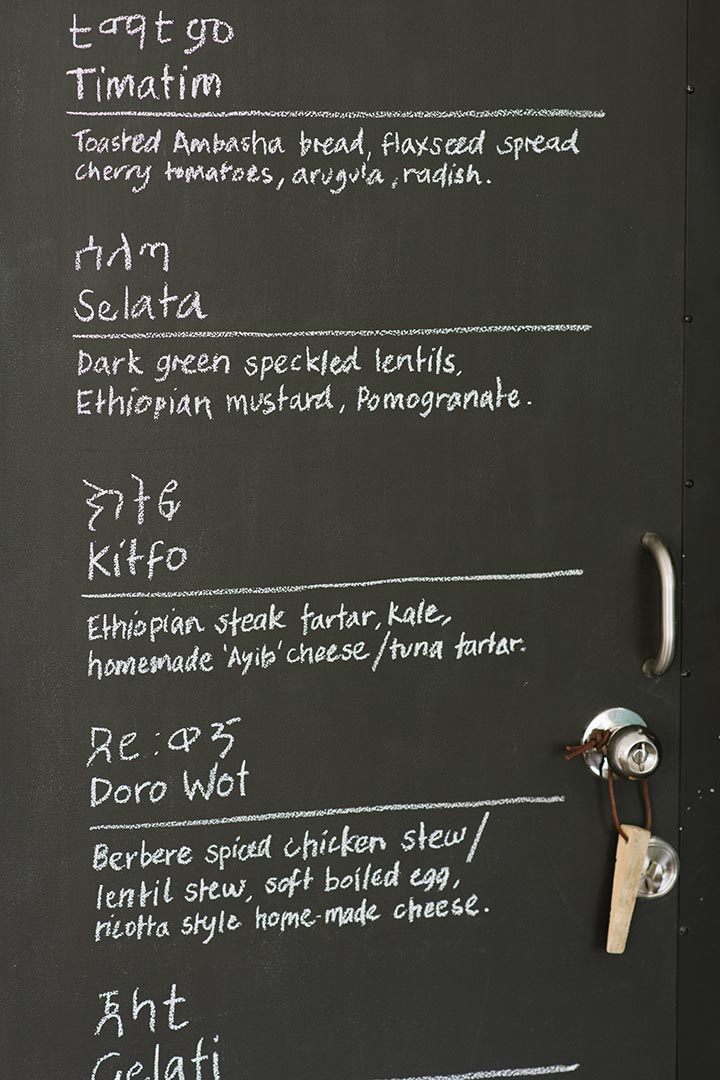 ቲማቲም
Timatim
Toasted Ambasha bread, flaxseed spread
cherry tomatoes, arugula, radish.
ሰላጣ
Selata
Dark green speckled lentils,
Ethiopian mustard, Pomogranate.
ክትፎ
Kitfo
Ethiopian steak tartar, kale,
homemade 'Ayib' cheese/tuna tartar.
ዶሮ፡ወጥ
Doro Wot
Berbere spiced chicken stew/
lentil stew, soft boiled egg,
ricotta style home-made cheese.
Gelati